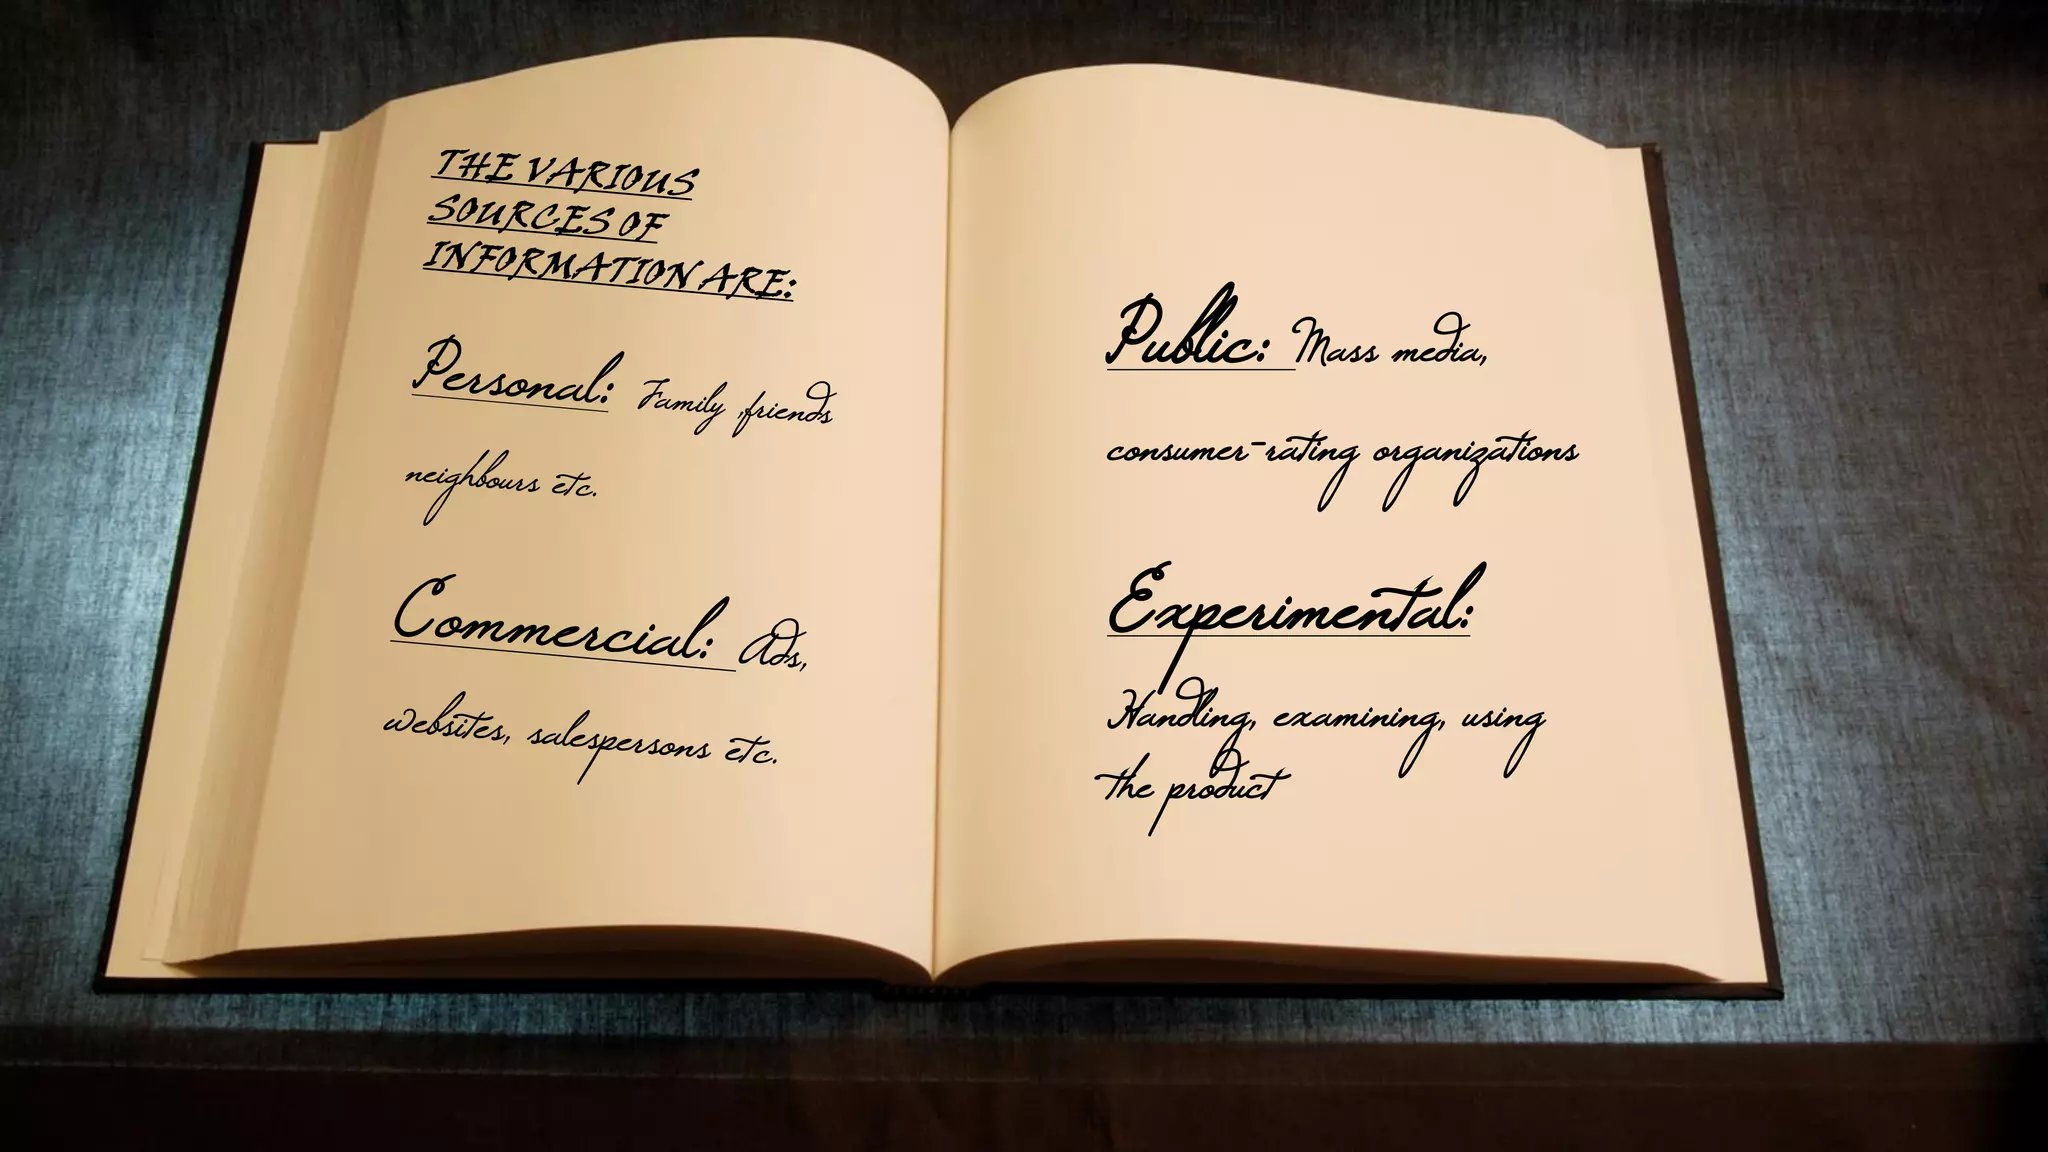 THE VARIOUS
SOURCES OF
INFORMATION ARE:
Personal: Family ,friends
neighbours etc.
Commercial: Ads,
websites, salespersons etc.
Public: Mass media,
consumer-rating organizations
Experimental:
Handling, examining, using
the product